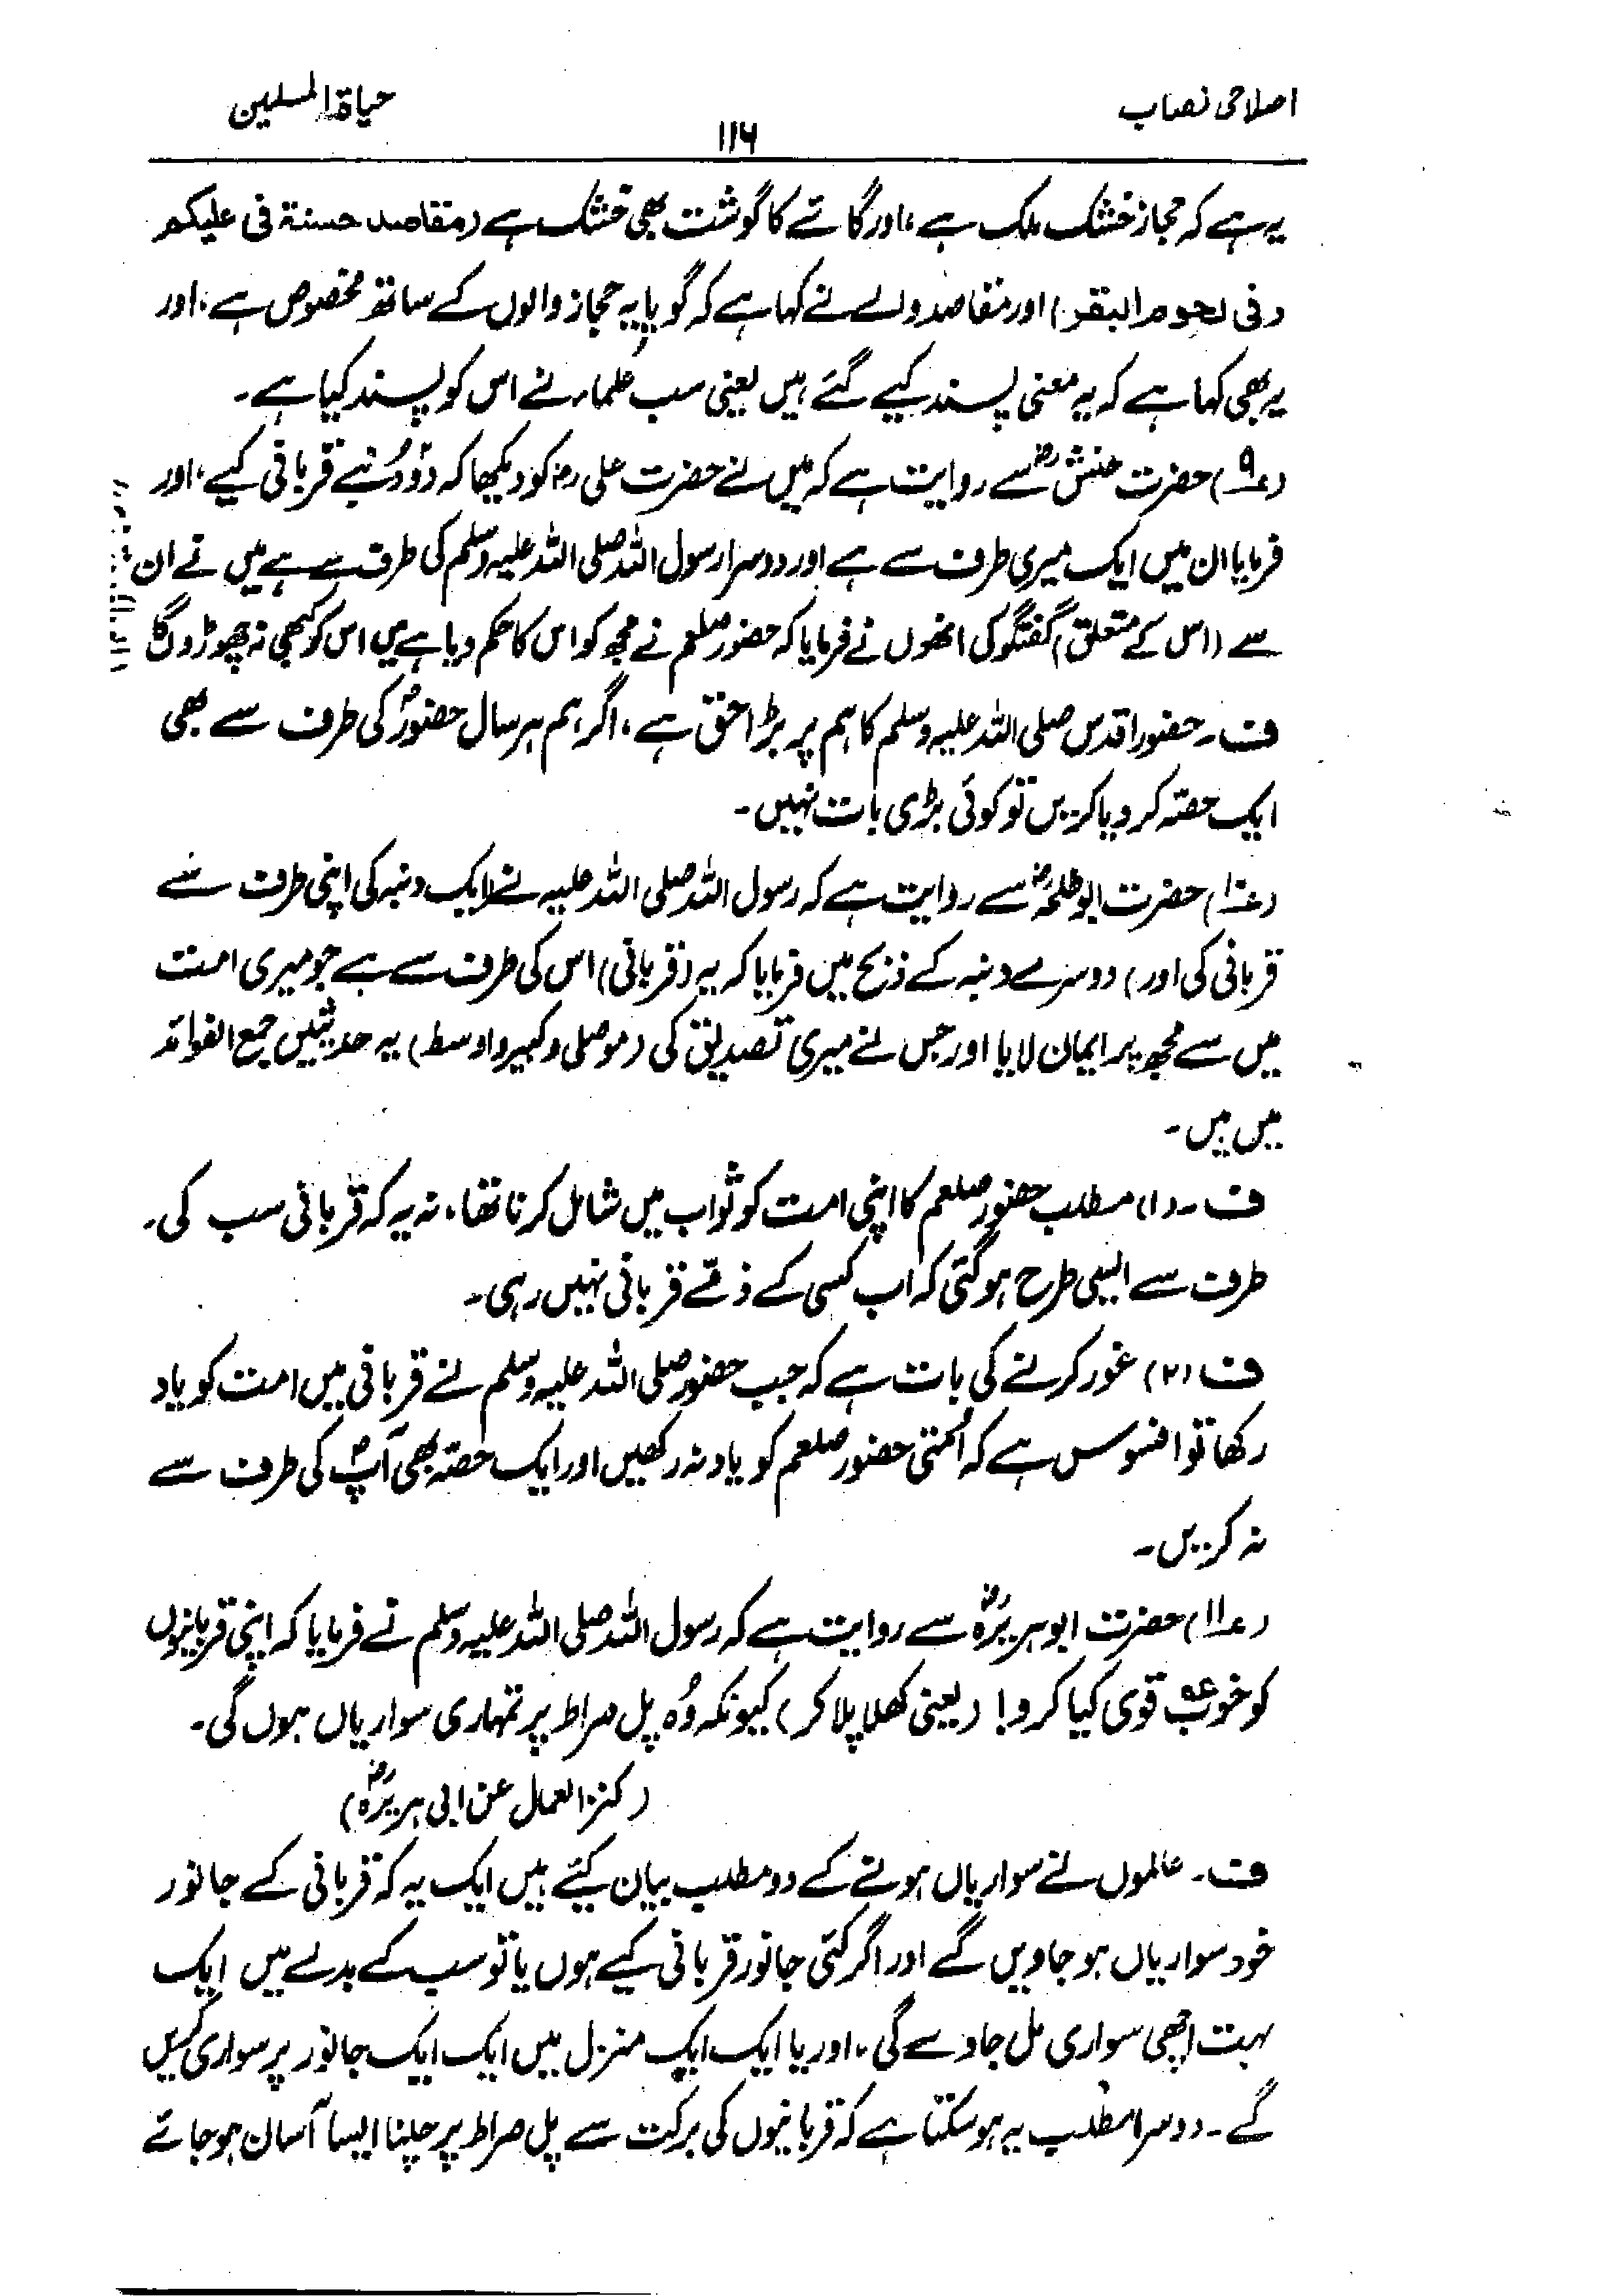 اصلاحی نصاب
۱۱۶
حیاۃ المسلمین
یہ ہے کہ حجاز خشک ملک ہے، اور گائے کا گوشت بھی خشک ہے (مقاصد حسنۃ فی علیکم
فی لحوم البقر) اور مقاصد والے نے کہا ہے کہ گویا یہ حجاز والوں کے ساتھ مخصوص ہے، اور
یہ بھی کہا ہے کہ یہ معنی پسند کیے گئے ہیں یعنی سب علماء نے اس کو پسند کیا ہے۔
(ع۹) حضرت حنشؓ سے روایت ہے کہ میں نے حضرت علی رضؓ کو دیکھا کہ دو دُنبے قربانی کیے، اور
فرمایا ان میں ایک میری طرف سے ہے اور دوسرا رسول اللہ صلی اللہ علیہ وسلم کی طرف سے ہے میں نے ان
سے (اس کے متعلق) گفتگو کی انھوں نے فرمایا کہ حضور صلعم نے مجھ کو اس کا حکم دیا ہے میں اس کو کبھی نہ چھوڑوں گا
ف۔ حضور اقدس صلی اللہ علیہ وسلم کا ہم پر بڑا حق ہے، اگر ہم ہر سال حضورؐ کی طرف سے بھی
ایک حصّہ کر دیا کریں تو کوئی بڑی بات نہیں۔
(ع۱۰) حضرت ابو طلحہؓ سے روایت ہے کہ رسول اللہ صلی اللہ علیہ نے (ایک دنبہ کی اپنی طرف سے
قربانی کی اور) دوسرے دنبہ کے ذبح میں فرمایا کہ یہ (قربانی) اس کی طرف سے ہے جو میری امت
میں سے مجھ پر ایمان لایا اور جس نے میری تصدیق کی (موصلی و کبیر و اوسط) یہ حدیثیں جمع الفوائد
میں ہیں۔
ف۔ (۱) مطلب حضور صلعم کا اپنی امت کو ثواب میں شامل کرنا تھا، نہ یہ کہ قربانی سب کی
طرف سے ایسی طرح ہو گئی کہ اب کسی کے ذمّے قربانی نہیں رہی۔
ف (۲) غور کرنے کی بات ہے کہ جب حضور صلی اللہ علیہ وسلم نے قربانی میں امت کو یاد
رکھا تو افسوس ہے کہ اُمتی حضور صلعم کو یاد نہ رکھیں اور ایک حصّہ بھی آپؐ کی طرف سے
نہ کریں۔
(ع۱۱) حضرت ابو ہریرہؓ سے روایت ہے کہ رسول اللہ صلی اللہ علیہ وسلم نے فرمایا کہ اپنی قربانیوں
کو خوب قوی کیا کرو! (یعنی کھلا پلا کر) کیونکہ وُہ پل صراط پر تمہاری سواریاں ہوں گی۔
(کنز العمال عن ابی ہریرہؓ)
ف۔ عالموں نے سواریاں ہونے کے دو مطلب بیان کیئے ہیں ایک یہ کہ قربانی کے جانور
خود سواریاں ہو جاویں گے اور اگر کئی جانور قربانی کیے ہوں یا تو سب کے بدلے میں ایک
بہت اچھی سواری مل جاوے گی، اور یا ایک ایک منزل میں ایک ایک جانور پر سواری کریں
گے۔ دوسرا مطلب یہ ہو سکتا ہے کہ قربانیوں کی برکت سے پل صراط پر چلنا ایسا آسان ہو جائے